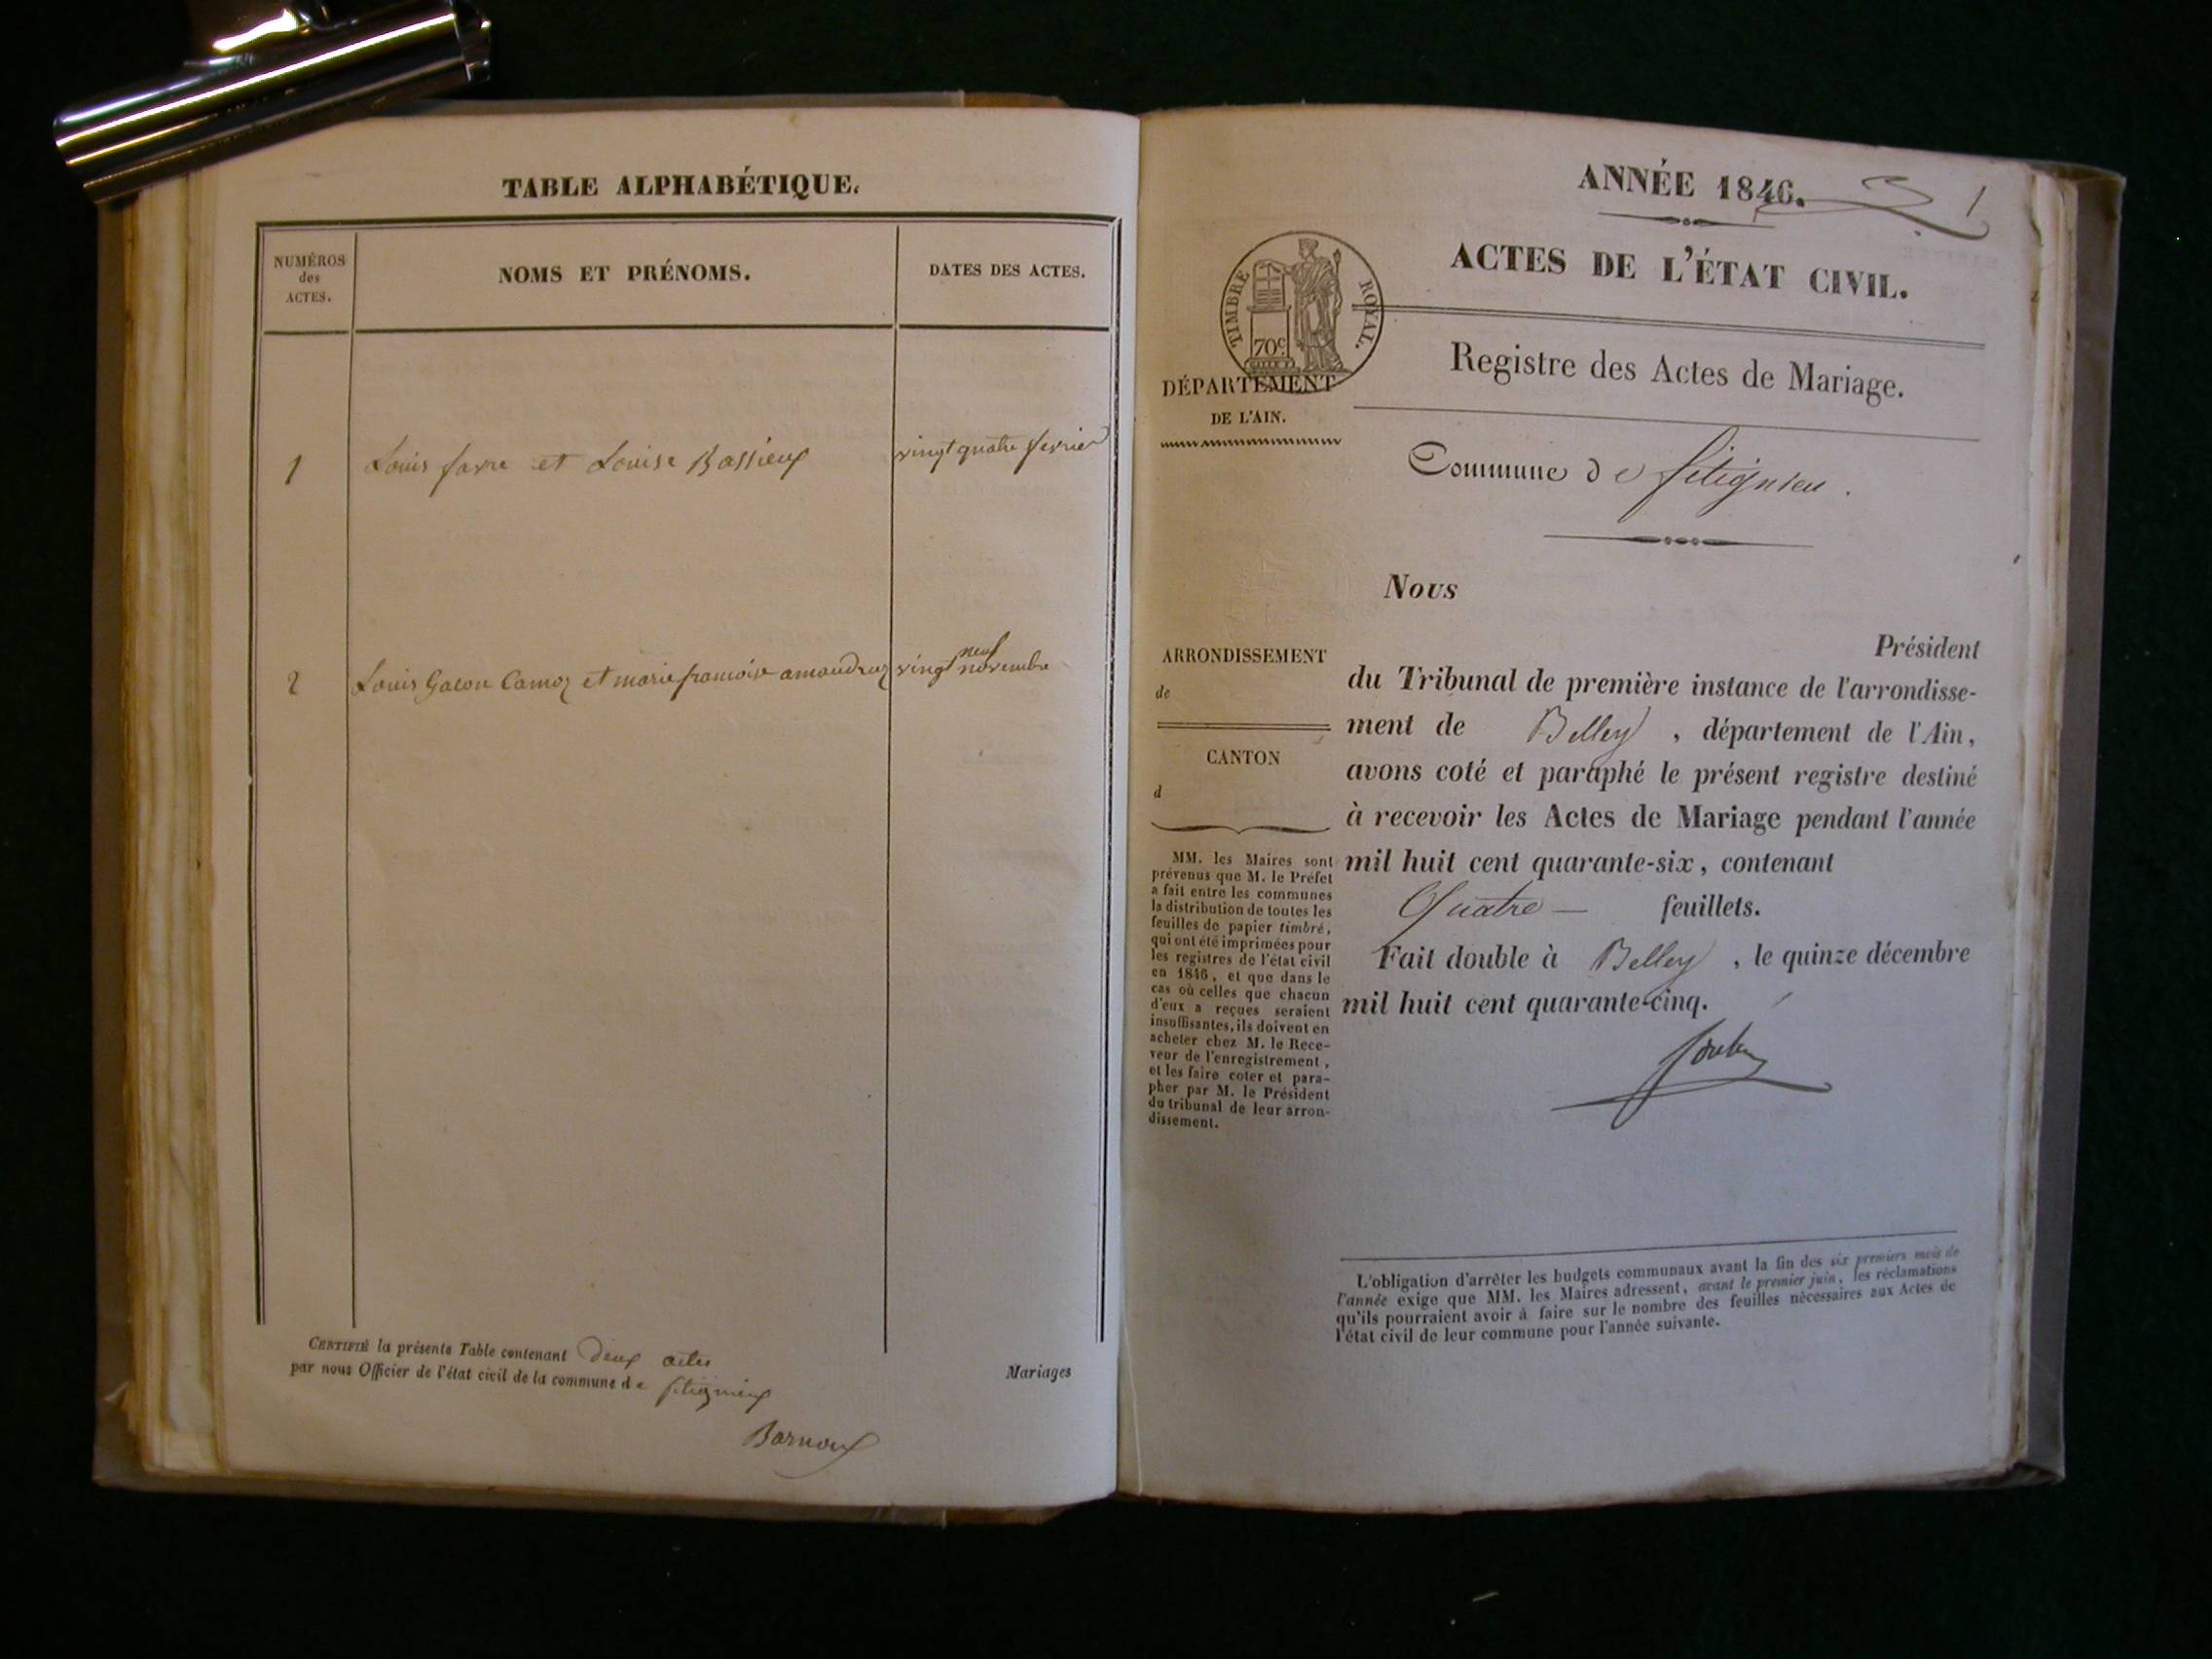 TABLE ALPHABÉTIQUE.
NUMÉROS
des
ACTES.
NOMS ET PRÉNOMS.
DATES DES ACTES.
1 Louis favre et Louise Bassieux vingt quatre fevrier
neuf
2 Louis Galon Camoz et marie francoise amoudruz vingt novembre
CERTIFIÉ la présente Table contenant deux actes
par nous Officier de l'état civil de la commune de fitignieux
Barnoux
Mariages
ANNÉE 1846.
1
ACTES DE L'ÉTAT CIVIL.
TIMBRE ROYAL.
70c
DÉPARTEMENT
DE L'AIN.
Registre des Actes de Mariage.
Commune de fitignieu.
Nous
Président
ARRONDISSEMENT
de
CANTON
d
du Tribunal de première instance de l'arrondisse-
ment de Belley, département de l'Ain,
avons coté et paraphé le présent registre destiné
à recevoir les Actes de Mariage pendant l'année
mil huit cent quarante-six, contenant
Quatre — feuillets.
Fait double à Belley, le quinze décembre
mil huit cent quarante-cinq.
MM. les Maires sont
prévenus que M. le Préfet
a fait entre les communes
la distribution de toutes les
feuilles de papier timbré,
qui ont été imprimées pour
les registres de l'état civil
en 1846, et que dans le
cas où celles que chacun
d'eux a reçues seraient
insuffisantes, ils doivent en
acheter chez M. le Rece-
veur de l'enregistrement,
et les faire coter et para-
pher par M. le Président
du tribunal de leur arron-
dissement.
L'obligation d'arrêter les budgets communaux avant la fin des six premiers mois de
l'année exige que MM. les Maires adressent, avant le premier juin, les réclamations
qu'ils pourraient avoir à faire sur le nombre des feuilles nécessaires aux Actes de
l'état civil de leur commune pour l'année suivante.